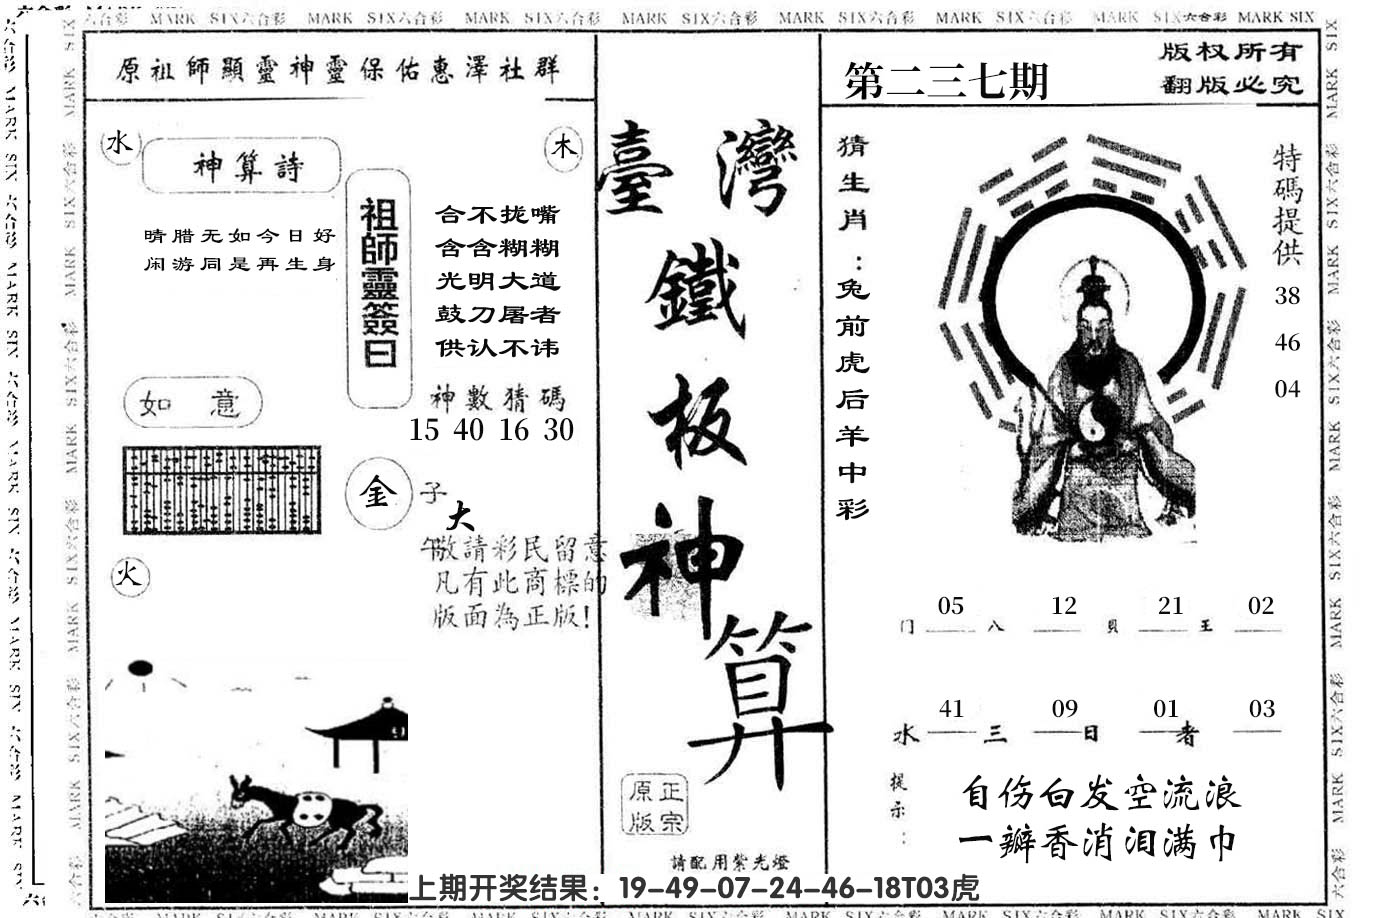 MARK SIX六合彩 MARK SIX六合彩 MARK SIX六合彩 MARK SIX六合彩 MARK SIX六合彩 MARK SIX六合彩 MARK SIX六合彩 MARK SIX
原祖師顯靈神靈保佑惠澤社群
水
神算詩
木
晴腊无如今日好
闲游同是再生身
祖師靈簽曰
合不拢嘴
含含糊糊
光明大道
鼓刀屠者
供认不讳
神數猜碼
15 40 16 30
如意
金
子
大
午
敬請彩民留意
凡有此商標的
版面為正版!
火
臺灣
鐵
板
神
算
正宗
原版
請配用紫光燈
第二三七期
版权所有
翻版必究
猜生肖：兔前虎后羊中彩
特碼提供
38
46
04
05 12 21 02
门 八 貝 王
41 09 01 03
水 三 日 者
提示：
自伤白发空流浪
一瓣香消泪满巾
上期开奖结果：19-49-07-24-46-18T03虎